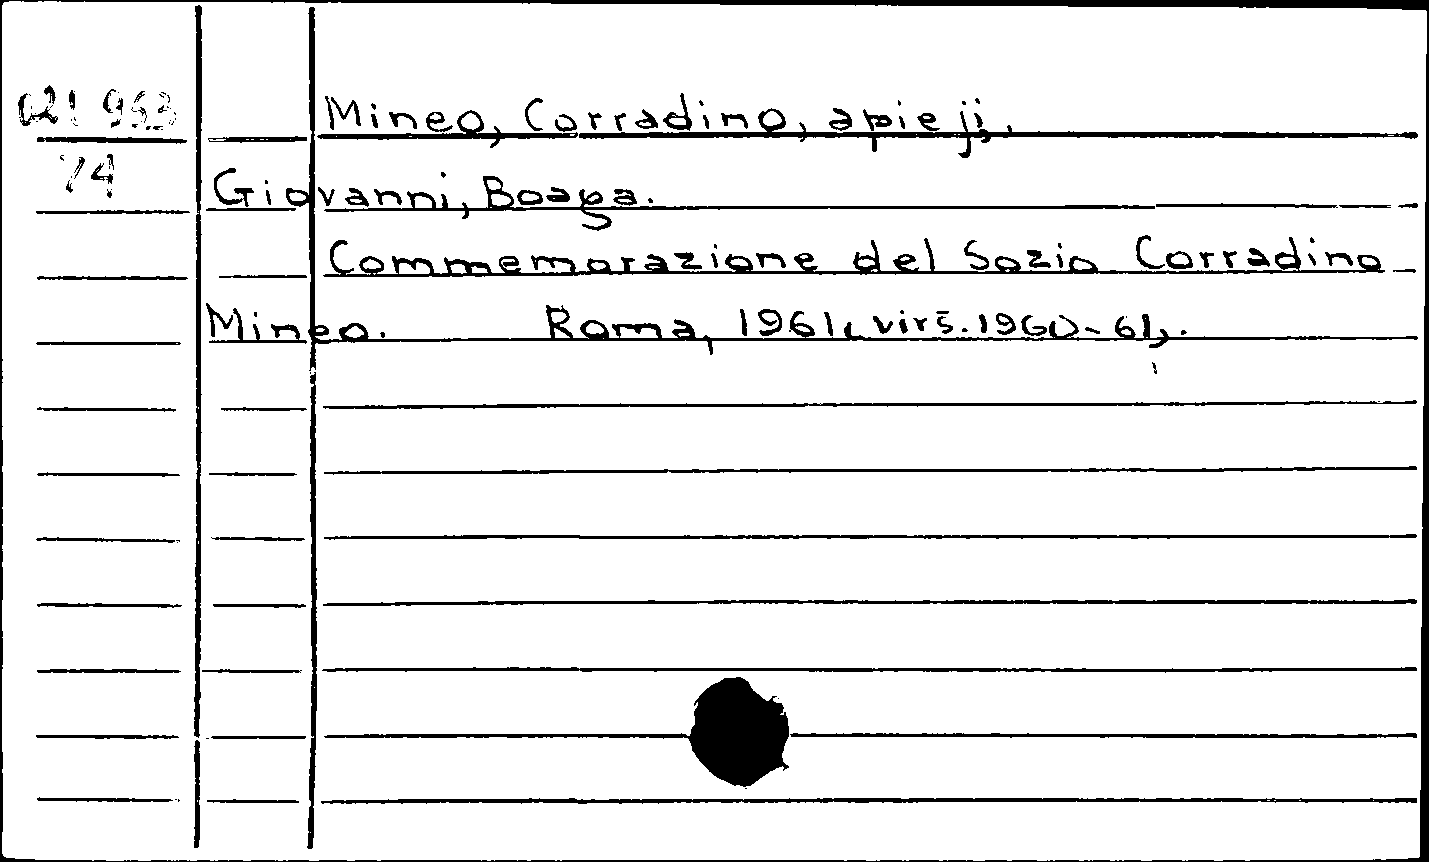 021 953
Mineo, Corradino, apie jį.
74
Giovanni, Boaga.
Commemorazione del Sozio Corradino
Mineo. Roma, 1961, virš. 1960-61,.